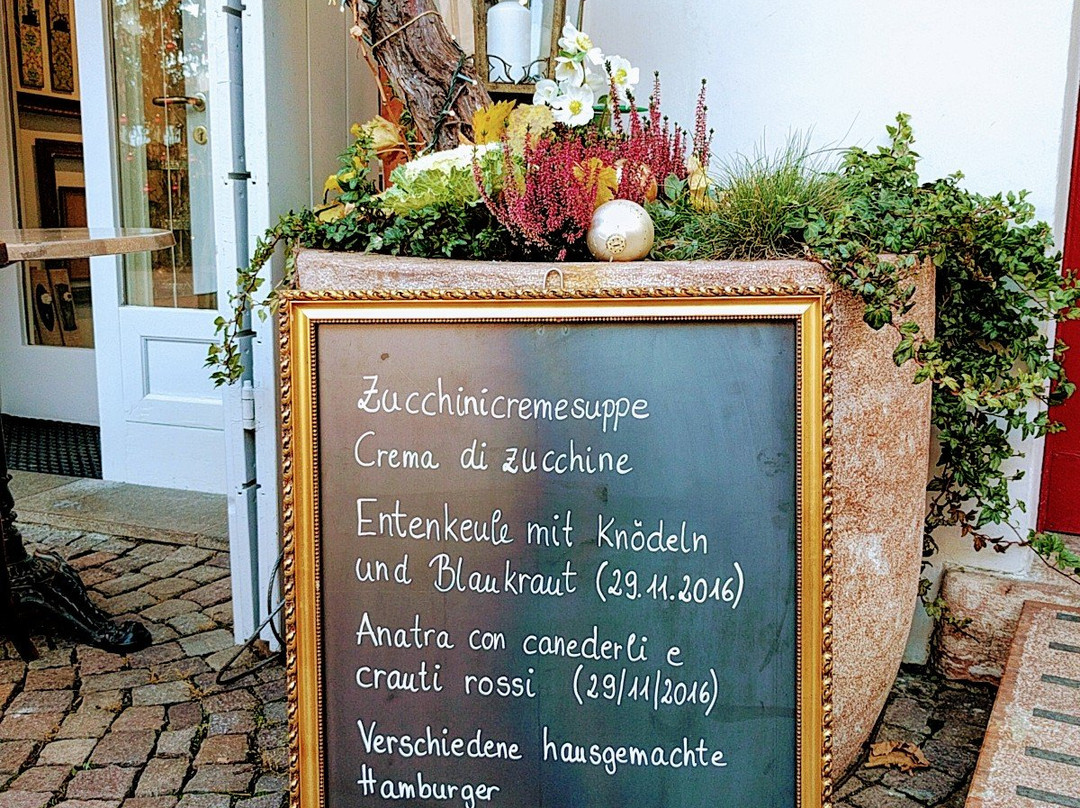 Zucchinicremesuppe
Crema di zucchine
Entenkeule mit Knödeln
und Blaukraut (29.11.2016)
Anatra con canederli e
crauti rossi (29/11/2016)
Verschiedene hausgemachte
Hamburger